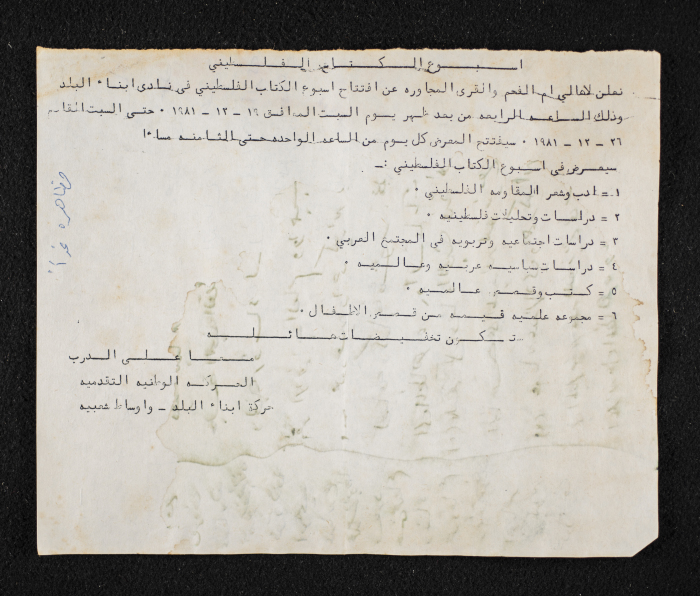 اسبوع الكتاب الفلسطيني
نعلن لاهالي ام الفحم والقرى المجاوره عن افتتاح اسبوع الكتاب الفلسطيني في نادي ابناء البلد
وذلك الساعه الرابعه من بعد ظهر يوم السبت الموافق ١٩ - ١٢ - ١٩٨١ ٠ حتى السبت القادم
٢٦ - ١٢ - ١٩٨١ ٠ سيفتتح المعرض كل يوم من الساعه الواحده حتى الثامنه مساءا
سيعرض في اسبوع الكتاب الفلسطيني :ـ
١ = ادب وشعر المقاومه الفلسطيني ٠
٢ = دراسات وتحليلات فلسطينيه ٠
٣ = دراسات اجتماعيه وتربويه في المجتمع العربي ٠
٤ = دراسات سياسيه عربيه وعالميه ٠
٥ = كتب وقصص عالميه ٠
٦ = مجموعه علميه قيمه من قصص الاطفال ٠
ستكون تخفيضات هائله
معا على الدرب
الحركه الوطنيه التقدميه
حركة ابناء البلد - واوساط شعبيه